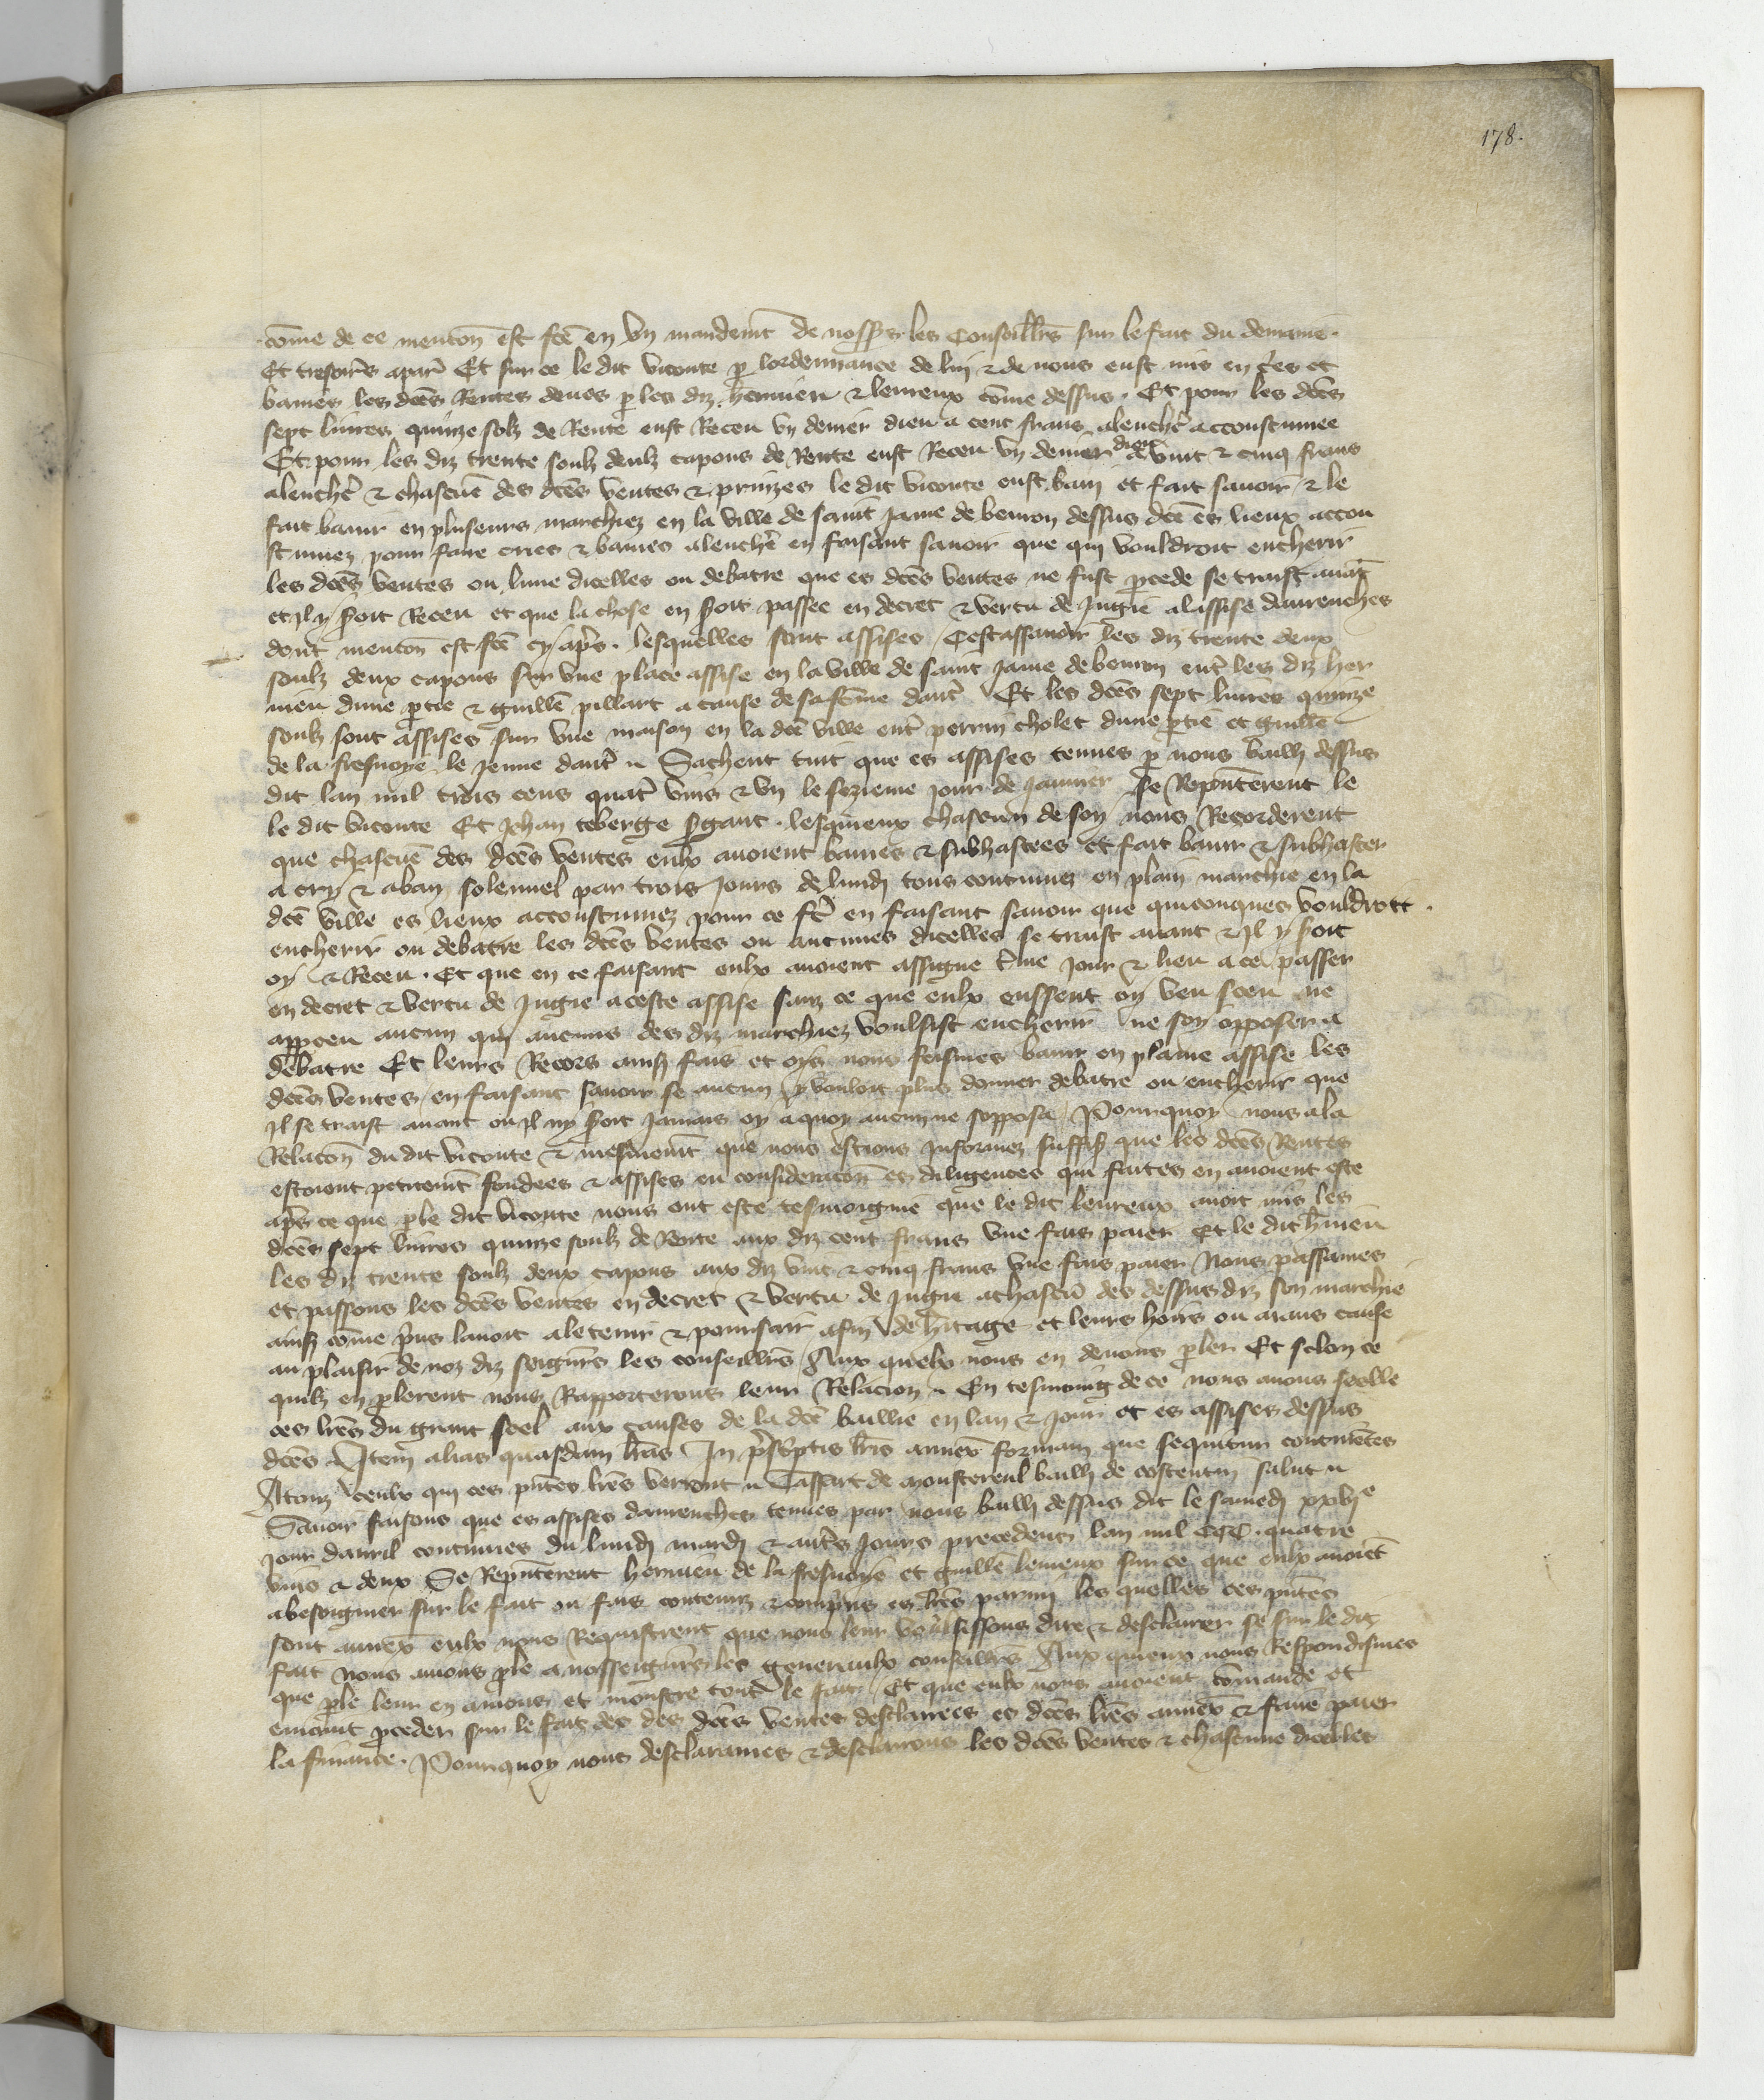 178.
cõme de ce mencõn est fcẽ en vn mandemt de nosss les Conseillrs sur le fait du demaine.
Et tresoirs aparis Et sur ce le dit viconte p lordennance de luy & de nous eust mis en cries et
banies les dces Rentes deues p les diz hermieu & leureux cõme dessus. Et pour les dces
sept liures quinze solz de Rente eust Receu vn denier dieu a cent frans alencher acoustumee
Et pour les diz trente soulz deulx capons de Rente eust Receu vn denier dieu a vint & cinq frans
alencher & chascune des dces ventes & prinzes le dit viconte eust bany et fait sauoir & le
fait banir en pluseurs marchiez en la ville de saint Jame de beuron dessus dce es lieux accou
stumez pour faire cries & banies alencher en faisant sauoir que qui vouldroit encherir
les dces ventes ou lune dicelles ou debatre que es dces ventes ne fust procede se traist auant
et Il y seroit Receu et que la chose en seroit passee en decret & vertu de Jugie alassise dauranches
dont mencõn est fce cy apres. lesquelles sont assises Cestassauoir les diz trente deux
soulz deux capons sur vne place assise en la ville de saint Jame de beuron entre les diz her
mieu dune partie & guille pillart a cause de sa fẽme dautre Et les dces sept liures quinze
soulz sont assises sur vne maison en la dce ville entre perrin cholet dune partie et guille
de la fresnoye le Jeune dautre Sachent tuit que es assises tenues p nous bailli dessus
dit lan mil trois cens quatre vins & vn le sezieme jour de januier se Representerent le
le dit viconte Et Jehan teberge sergant. lesquieux chascun de soy nous Recorderent
que chascune des dces ventes eulx auoient banies & subhastees et fait banir & subhaster
a cry & a ban solennel par trois Jours de lundi tous continuez en plain marchie en la
dce ville es lieux acoustumez pour ce fere en faisant sauoir que quiconques vouldroit.
encherir ou debatre les dces ventes ou aucunes dicelles se traist auant & Il y seroit
oy & Receu. Et que en ce faisant eulx auoient assigne terme Jour & lieu a ce passer
en decret & vertu de Jugie a ceste assise sanz ce que eulx eussent oy veu sceu ne
apperceu aucun qui aucuns des diz marchiez voulsist encherir ne soy opposer a
debatre Et leurs Recors ainsi fais et oys nous feismes banir en plaine assise les
dces ventes en faisant sauoir se aucun y vouloit plus donner debatre ou encherir que
Il se traist auant ou Il ny seroit Jamais oy a quoy aucun ne soppose Pourquoy nous a la
Relacõn du dit viconte & mesmemt que nous estions Informez suffisamment que les dces Rentes
estoient petitemt fondees & assises eu consideracõn es diligences qui faites en auoient este
apres ce que p le dit viconte nous ont este tesmoignie que le dit leureux auoit mis les
dces sept liures quinze soulz de Rente aux diz cent frans vne fais paier Et le dit hermieu
les diz trente soulz deux capons aux diz vint & cinq frans vne fais paier Nous passames
et passons les dces ventes en decret & vertu de Jugie a chascun des dessus diz son marchie
ainsi cõme prins lauoit a le tenir & poursuir afin de heritage et leurs hoirs ou aians cause
au plaisir de noz diz seignrs les conseillrs Aux quelx nous en deuons parler Et selon ce
quilz en parlerent nous Rapporterons leur Relacion En tesmoing de ce nous auons seelle
ces lrẽs du grant seel aux causes de la dce baillie en lan & jour et es assises dessus
dces Item alias quasdam lras In prescriptis lris annexas formam que sequitur continentes
A touz ceulx qui ces pntes lres verront Tassart de monstereul bailli de costentin salut
Sauoir faisons que es assises dauranches tenues par nous bailli dessus dit le samedi xxvje
jour dauril continues du lundi mardi & autres jours precedens lan mil CCC. quatre
vins & deux Se Representerent hermieu de la fresnoye et guille leureux sur ce que eulx auoient
a besoignier sur le fait ou fais contenuz & compris es lrẽs parmi les quelles ces pntes
sont annexees eulx nous Requistrent que nous leur voulsissons dire & desclairer se sur le dit
fait nous auons parle a nosseignrs les generaulx conseillrs Aux quieux nous Respondismes
que parle leur en auons et monstre tout le fait Et que eulx nous auoient cõmande et
enioint proceder sur le fait des des dces ventes desclarees es dces lrẽs annexees & faire paier
la finance. Pourquoy nous desclarames & desclairons les dces ventes & chascune dicelles